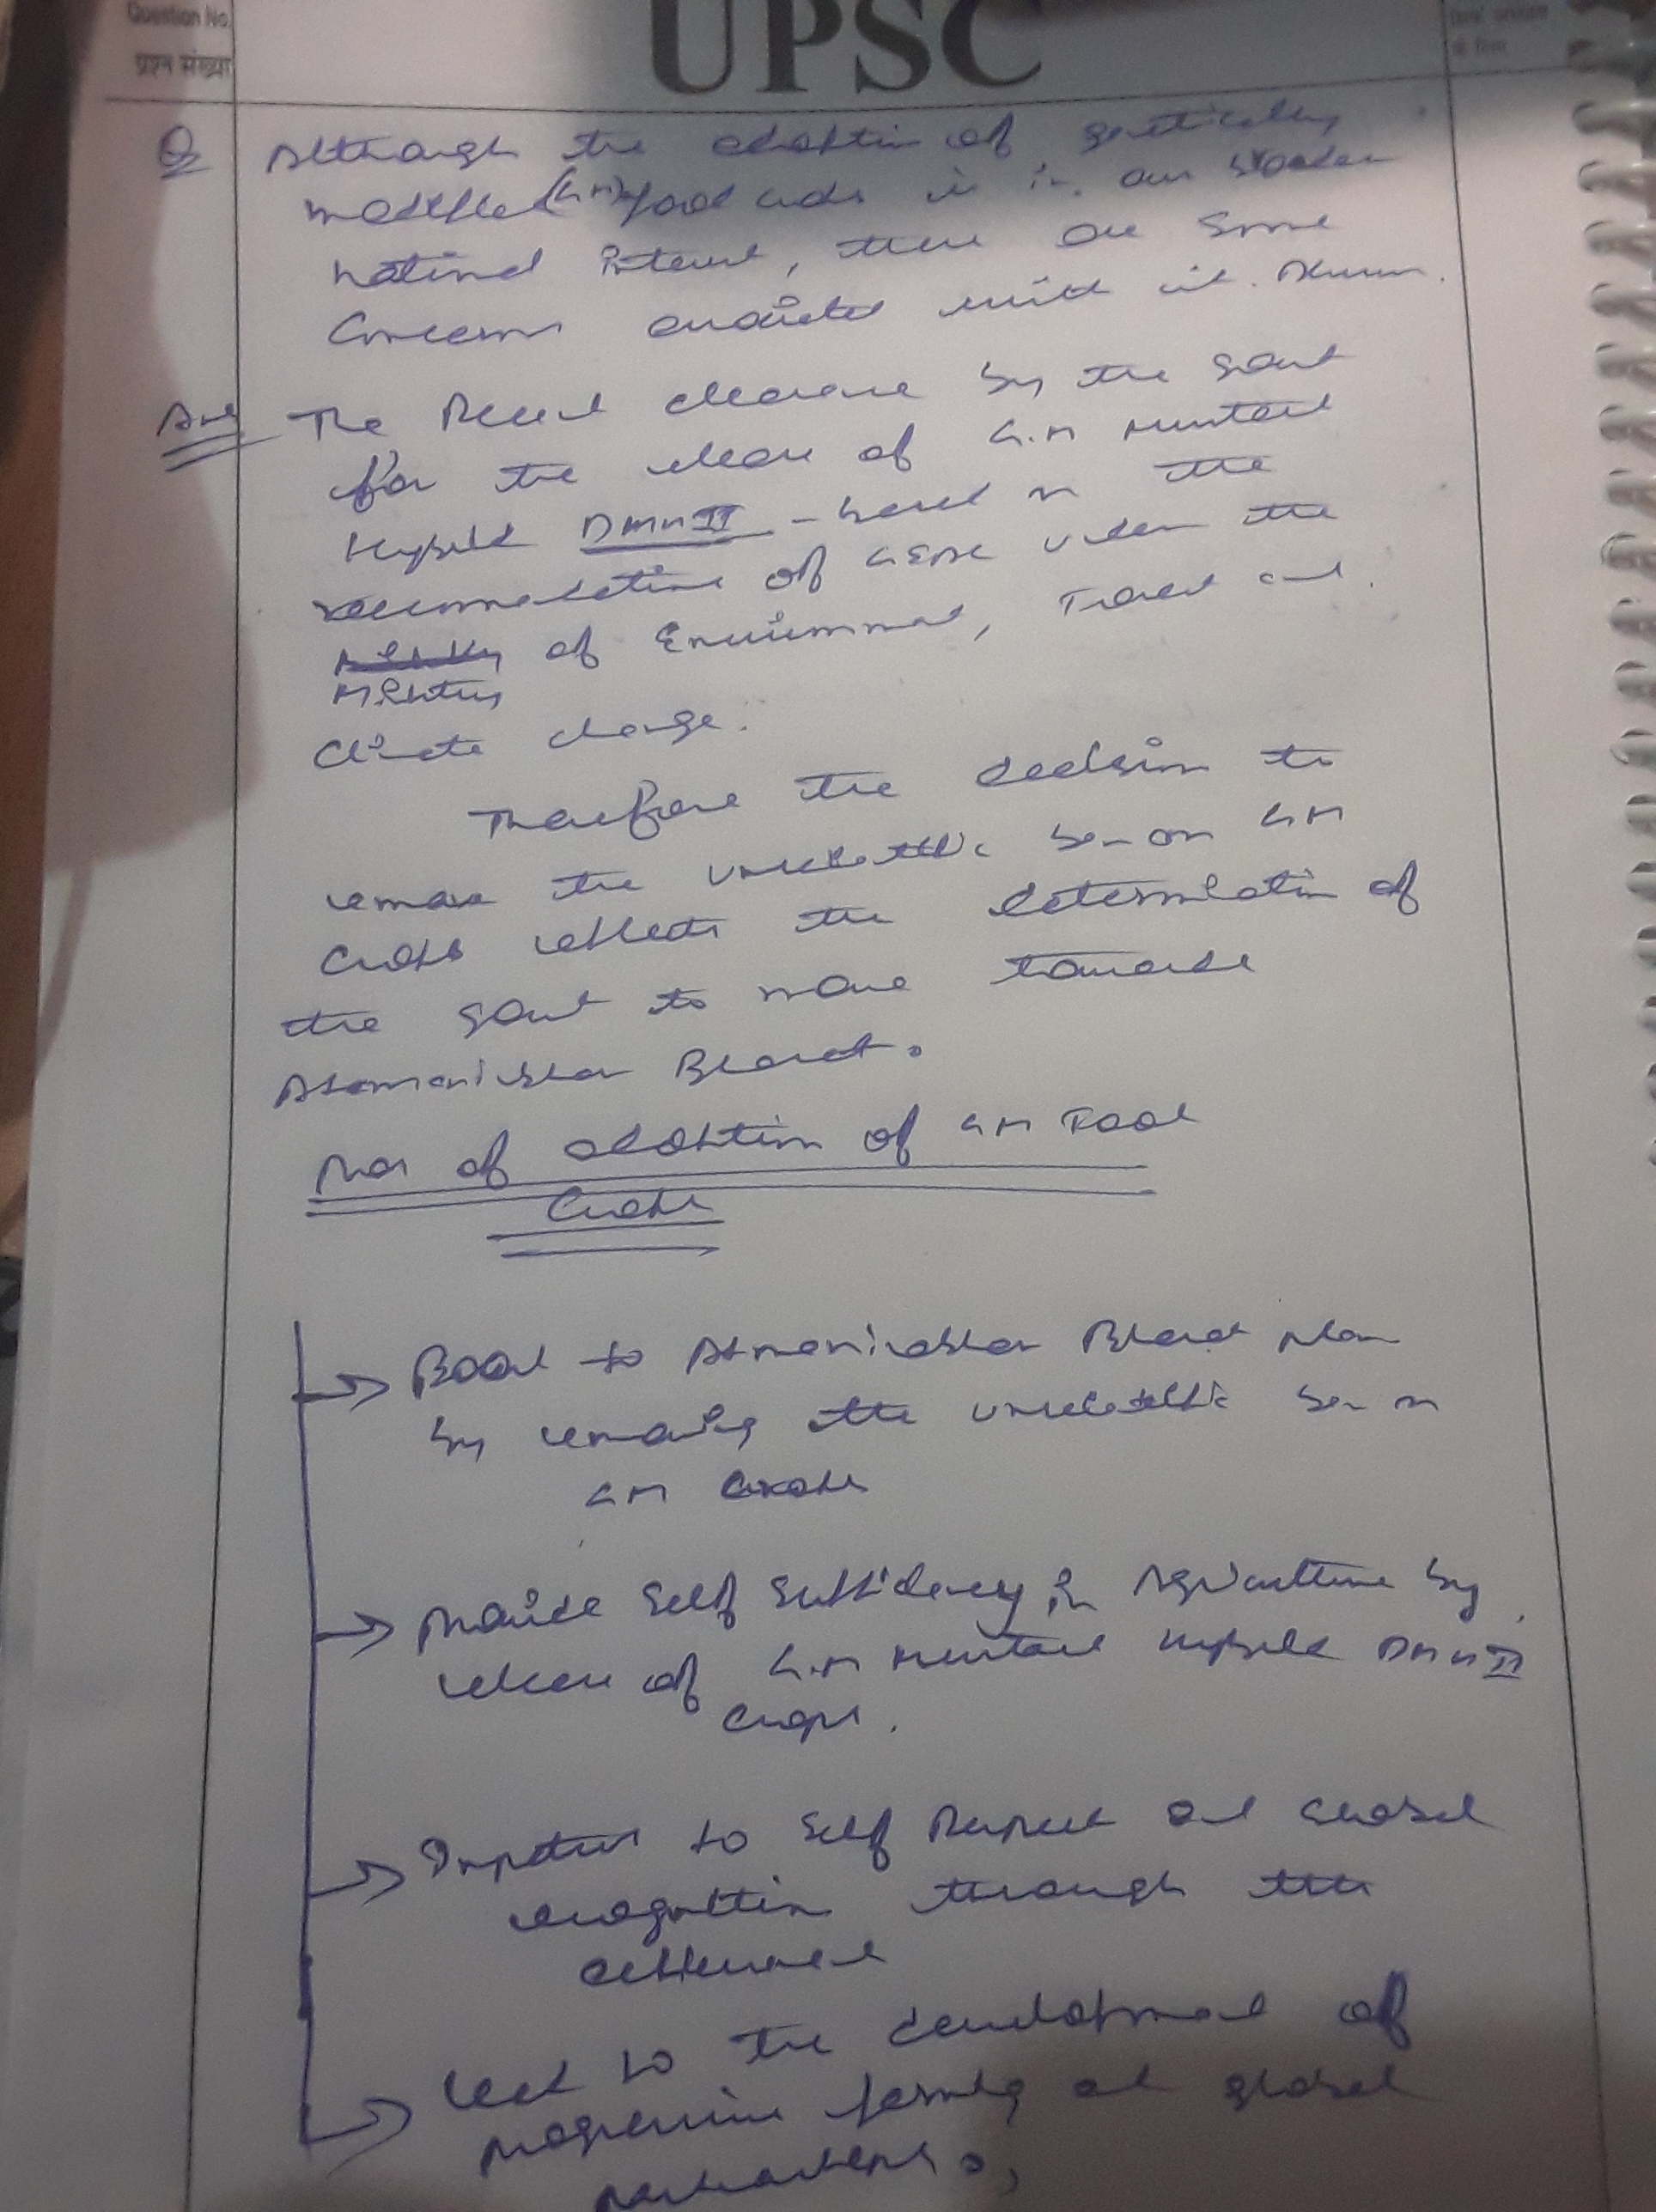 Question No.
प्रश्न संख्या
UPSC
Q Although the adoption of genetically
modified (GM) food crops is in our broader
national interest, there are some
concerns associated with it. Discuss.
Ans The Recent clearance by the govt
for the release of G.M Mustard
Hybrid DMH II - based on the
recommendation of GEAC under the
of Environment, Forest and
Ministry
Climate change.
Therefore the decision to
remove the unscientific ban on GM
crops reflects the determination of
the govt to move towards
Atmanirbhar Bharat.
Pros of adoption of GM Food
Crops
Boost to Atmanirbhar Bharat plan
by removing the unscientific ban on
GM crops
Provide Self Sufficiency in Agriculture by
release of G.M Mustard Hybrid DMH II
Crops.
Impetus to Self Respect and Global
recognition through this
achievement
Lead to the development of
progressive farming and global